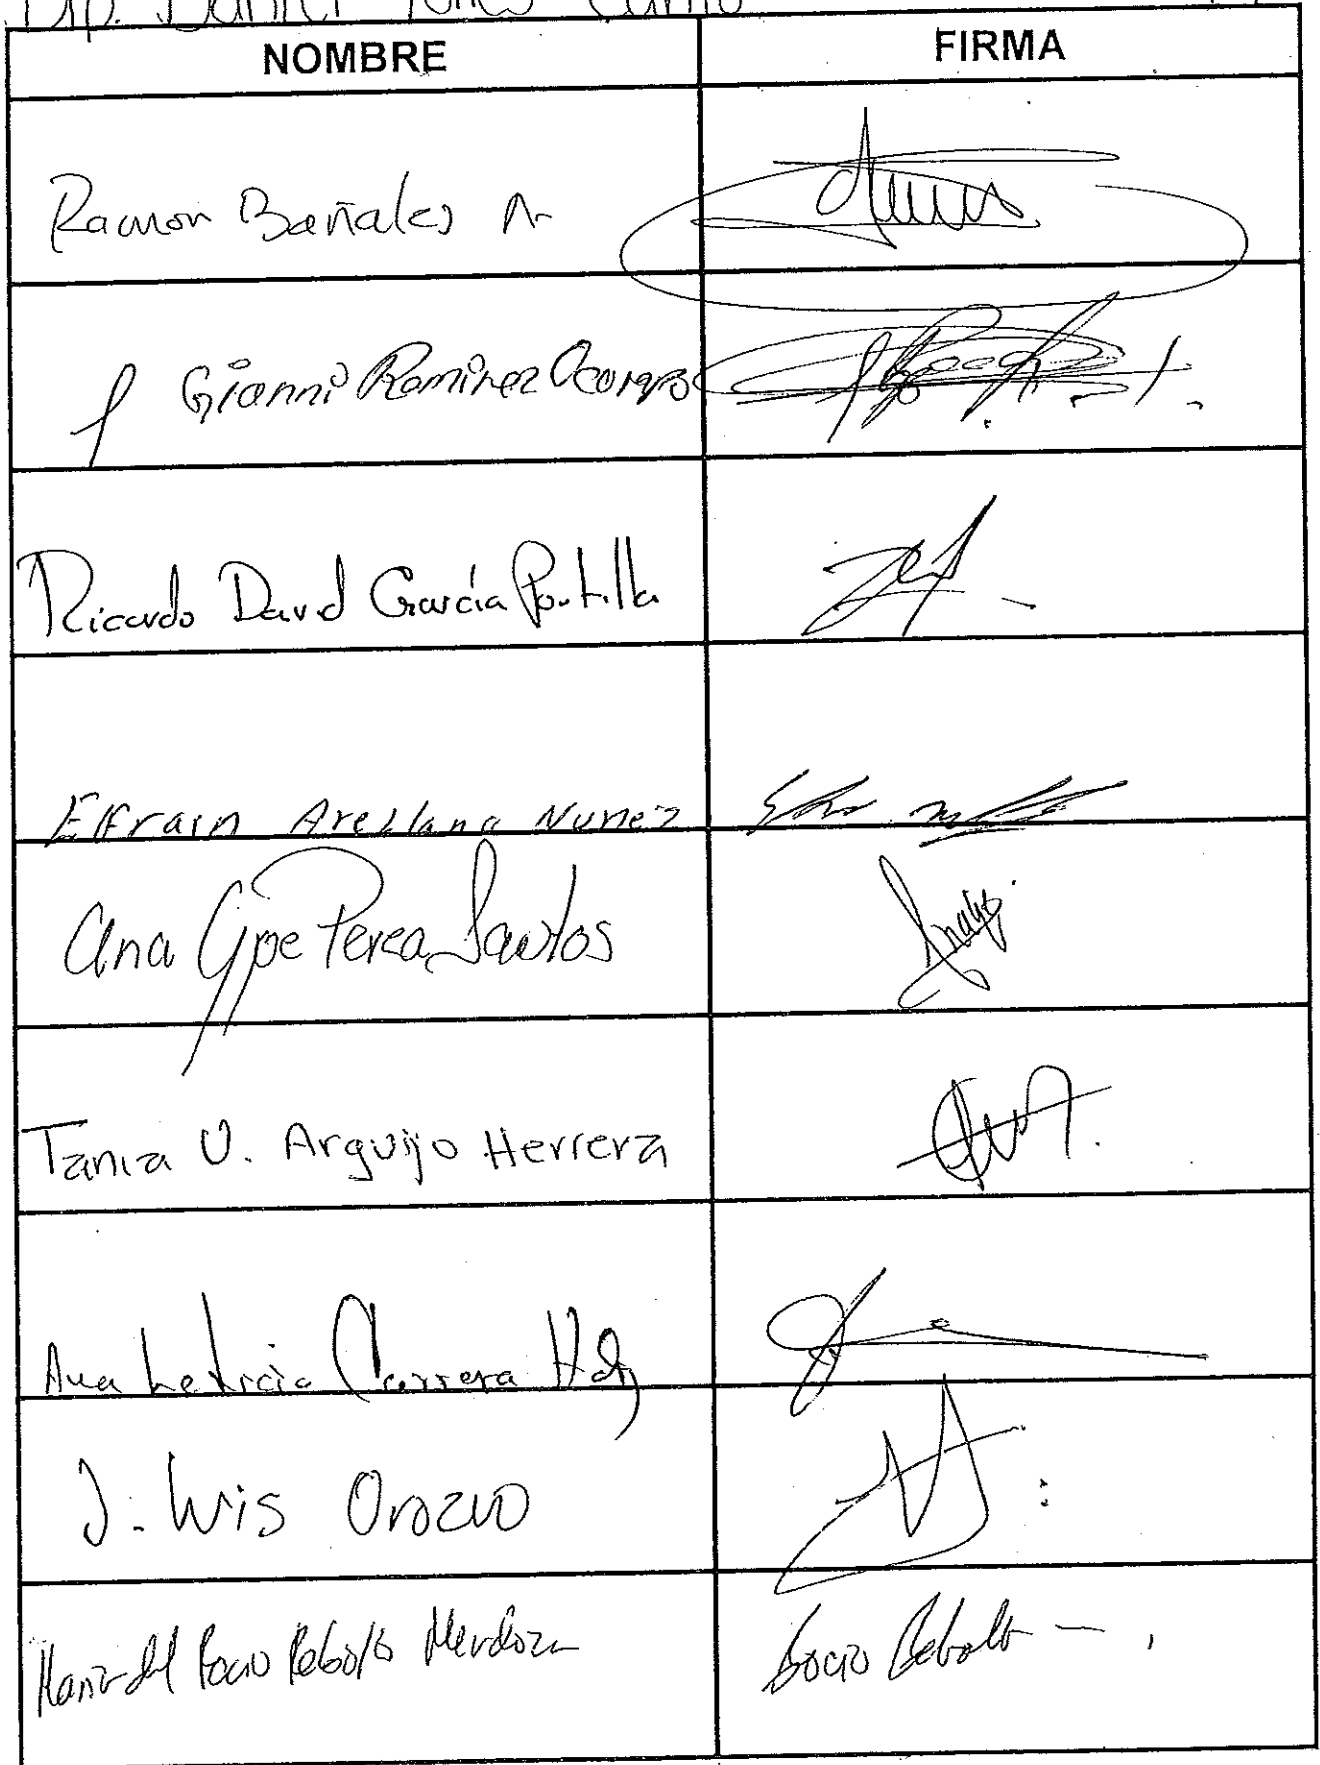 Dip. Daniel Torres Cantú
NOMBRE FIRMA
Ramon Bañales
Gianni Ramirez Ocampo
Ricardo David García Portilla
Effrain Arellano Nunez
Ana Gpe Perea Santos
Tania V. Arguijo Herrera
Ana Leticia Carrera Hdz
J. Luis Orozco
Maria del Rocio Rebollo Mendoza Rocio Rebollo